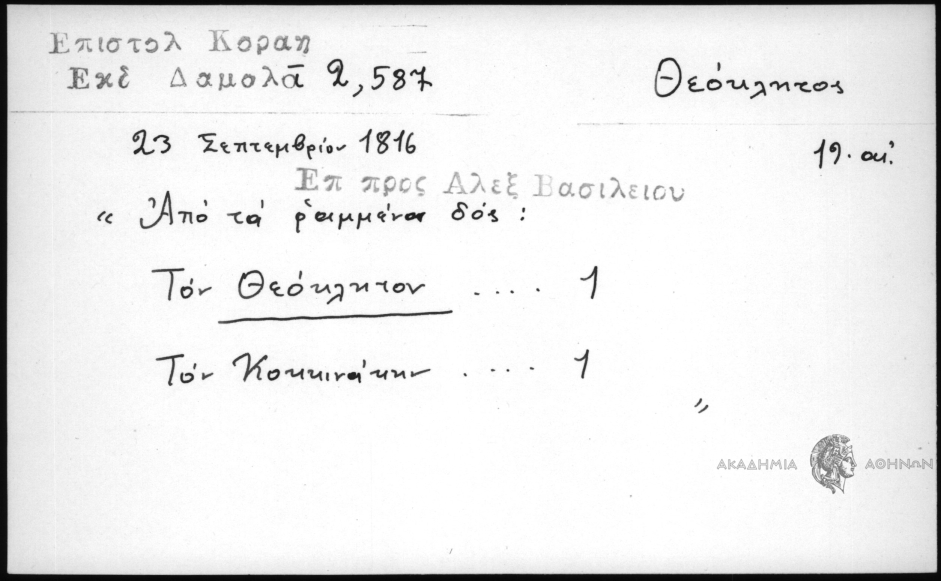 Επιστολ Κοραη
Εκδ Δαμαλᾶ 2,587
Θεόκλητος
23 Σεπτεμβρίου 1816
19. αἰ.
Επ προς Αλεξ Βασιλειου
« Ἀπό τά ῥαμμένα δός :
Τόν Θεόκλητον .... 1
Τόν Κοκκινάκην .... 1
»
ΑΚΑΔΗΜΙΑ ΑΘΗΝΩΝ